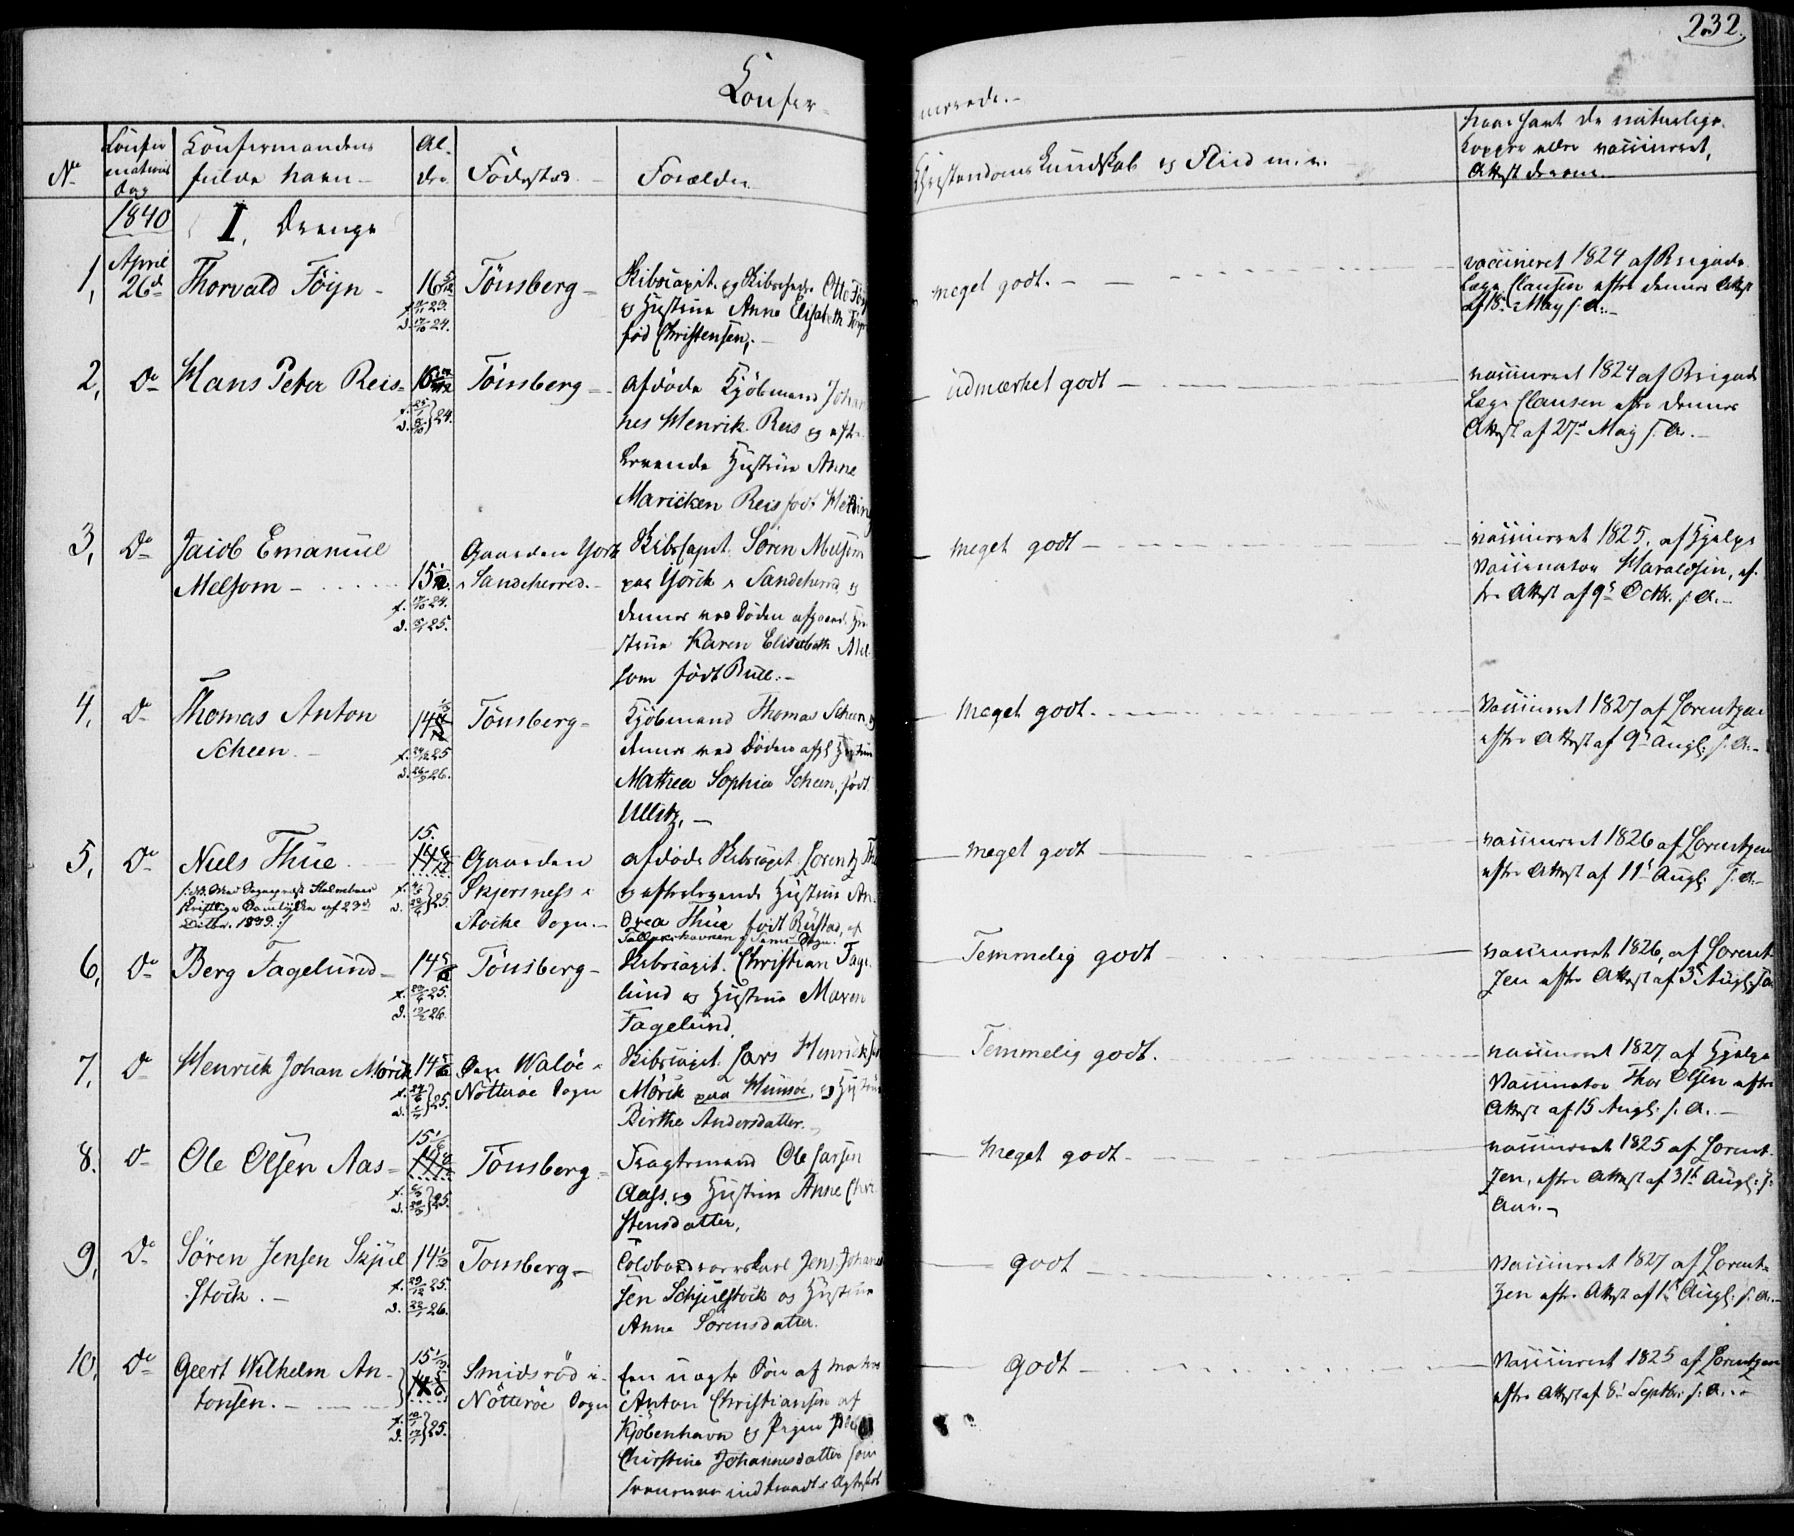 232.
Confirmerede.
No
Confirmations Dag
Confirmandens fulde Navn
Alder
Födested
Forældre
Christendoms Kundskab og Flid m.v.
Have havt de naturlige Kopper eller vaccineret, Attest derom.
1840
I. Drenge
1, April 26d
Thorvald Föyn
16
Tönsberg
Skibscapit. og Skibsrheder Otto Föyn
og Hustrue Anne Elisabeth Föyn
föd Christensen,
meget godt.
vaccineret 1824 af Brigade
Læge Clausen efter dennes Attest
af 18 May s. A.
2, Do
Hans Peter Reis
Tönsberg
Afdöde Kjöbmand Johan
nes Henrik Reis og efter
levende Hustrue Anne
Maricken Reis födt
udmærket godt
vaccineret 1824 af Brigade
Læge Clausen efter dennes
Attest af 27d May s. A.
3, Do
Jacob Emanuel
Melsom
15
Gaarden York
i Sandeherred.
Skibscapit. Sören Melsom
paa Yorck i Sandeherred og
dennes ved Döden afgaaede Hu
strue Karen Elisabeth Mel
som födt Bull.
meget godt
vaccineret 1825, af Hjelpe
Vaccinateur Haraldsen, ef
ter Attest af 9d Octbr. s. A.
4, Do
Thomas Anton
Scheen
14
Tönsberg
Kjöbmand Thomas Scheen og
dennes ved Döden afg. Hustrue
Mathea Sophia Scheen, födt
meget godt.
Vaccineret 1827 af Lorentzen
efter Attest af 9d Augl. s. A.
5, Do
Niels Thue
15.
Gaarden
Skjersness i
Stocke Sogn.
afdöde Skibscapt. Lorentz Thue
og efterlevende Hustrue An
drea Thue födt Rustad, af
meget godt
vaccineret 1826 af Lorentzen
efter Attest af 11d Augl. s. A.
6, Do
Berg Fagelund
14
Tönsberg
Skibscapit. Christian Fage
lund og Hustrue Maren
Fagelund
Temmelig godt
vaccineret 1826, af Lorent
zen efter Attest af 3d Augl. s. A.
7, Do
Henrick Johan Mörik
14
Öen Walöe i
Nötteröe Sogn
Skibscapit. Lars Henricksen
Mörik paa Husöe, og Hustrue
Birthe Andersdatter.
Temmelig godt.
vaccineret 1827 af Hjelpe
Vaccinateur Thor Olsen efter
Attest af 15 Augl. s. A.
8. Do
Ole Olsen Aas
15
Tönsberg
Fragtemand Ole Larsen
Aass, og Hustrue Anne Chri
stensdatter,
Meget godt.
vaccineret 1825 af Lorent
zen, efter Attest af 31d Augl. s.
Aar.
9, Do
Sören Jensen Skjul
stock.
14
Tönsberg
Jens Johanne
sen Schjulstock og Hustrue
Anne Sörensdatter.
godt
Vaccineret 1827 af Lorent
zen efter Attest af 1d Augl. s. A.
10, Do
Geert Wilhelm An
tonsen.
15
Smidsröd i
Nötteröe Sogn
Een uægte Sön af Matros
Anton Christiansen af
Kjöbenhavn og Pigen
Christine Johannesdatter som
godt
Vaccineret 1825 af Lorentzen
efter Attest af 8d Septbr. s. A.